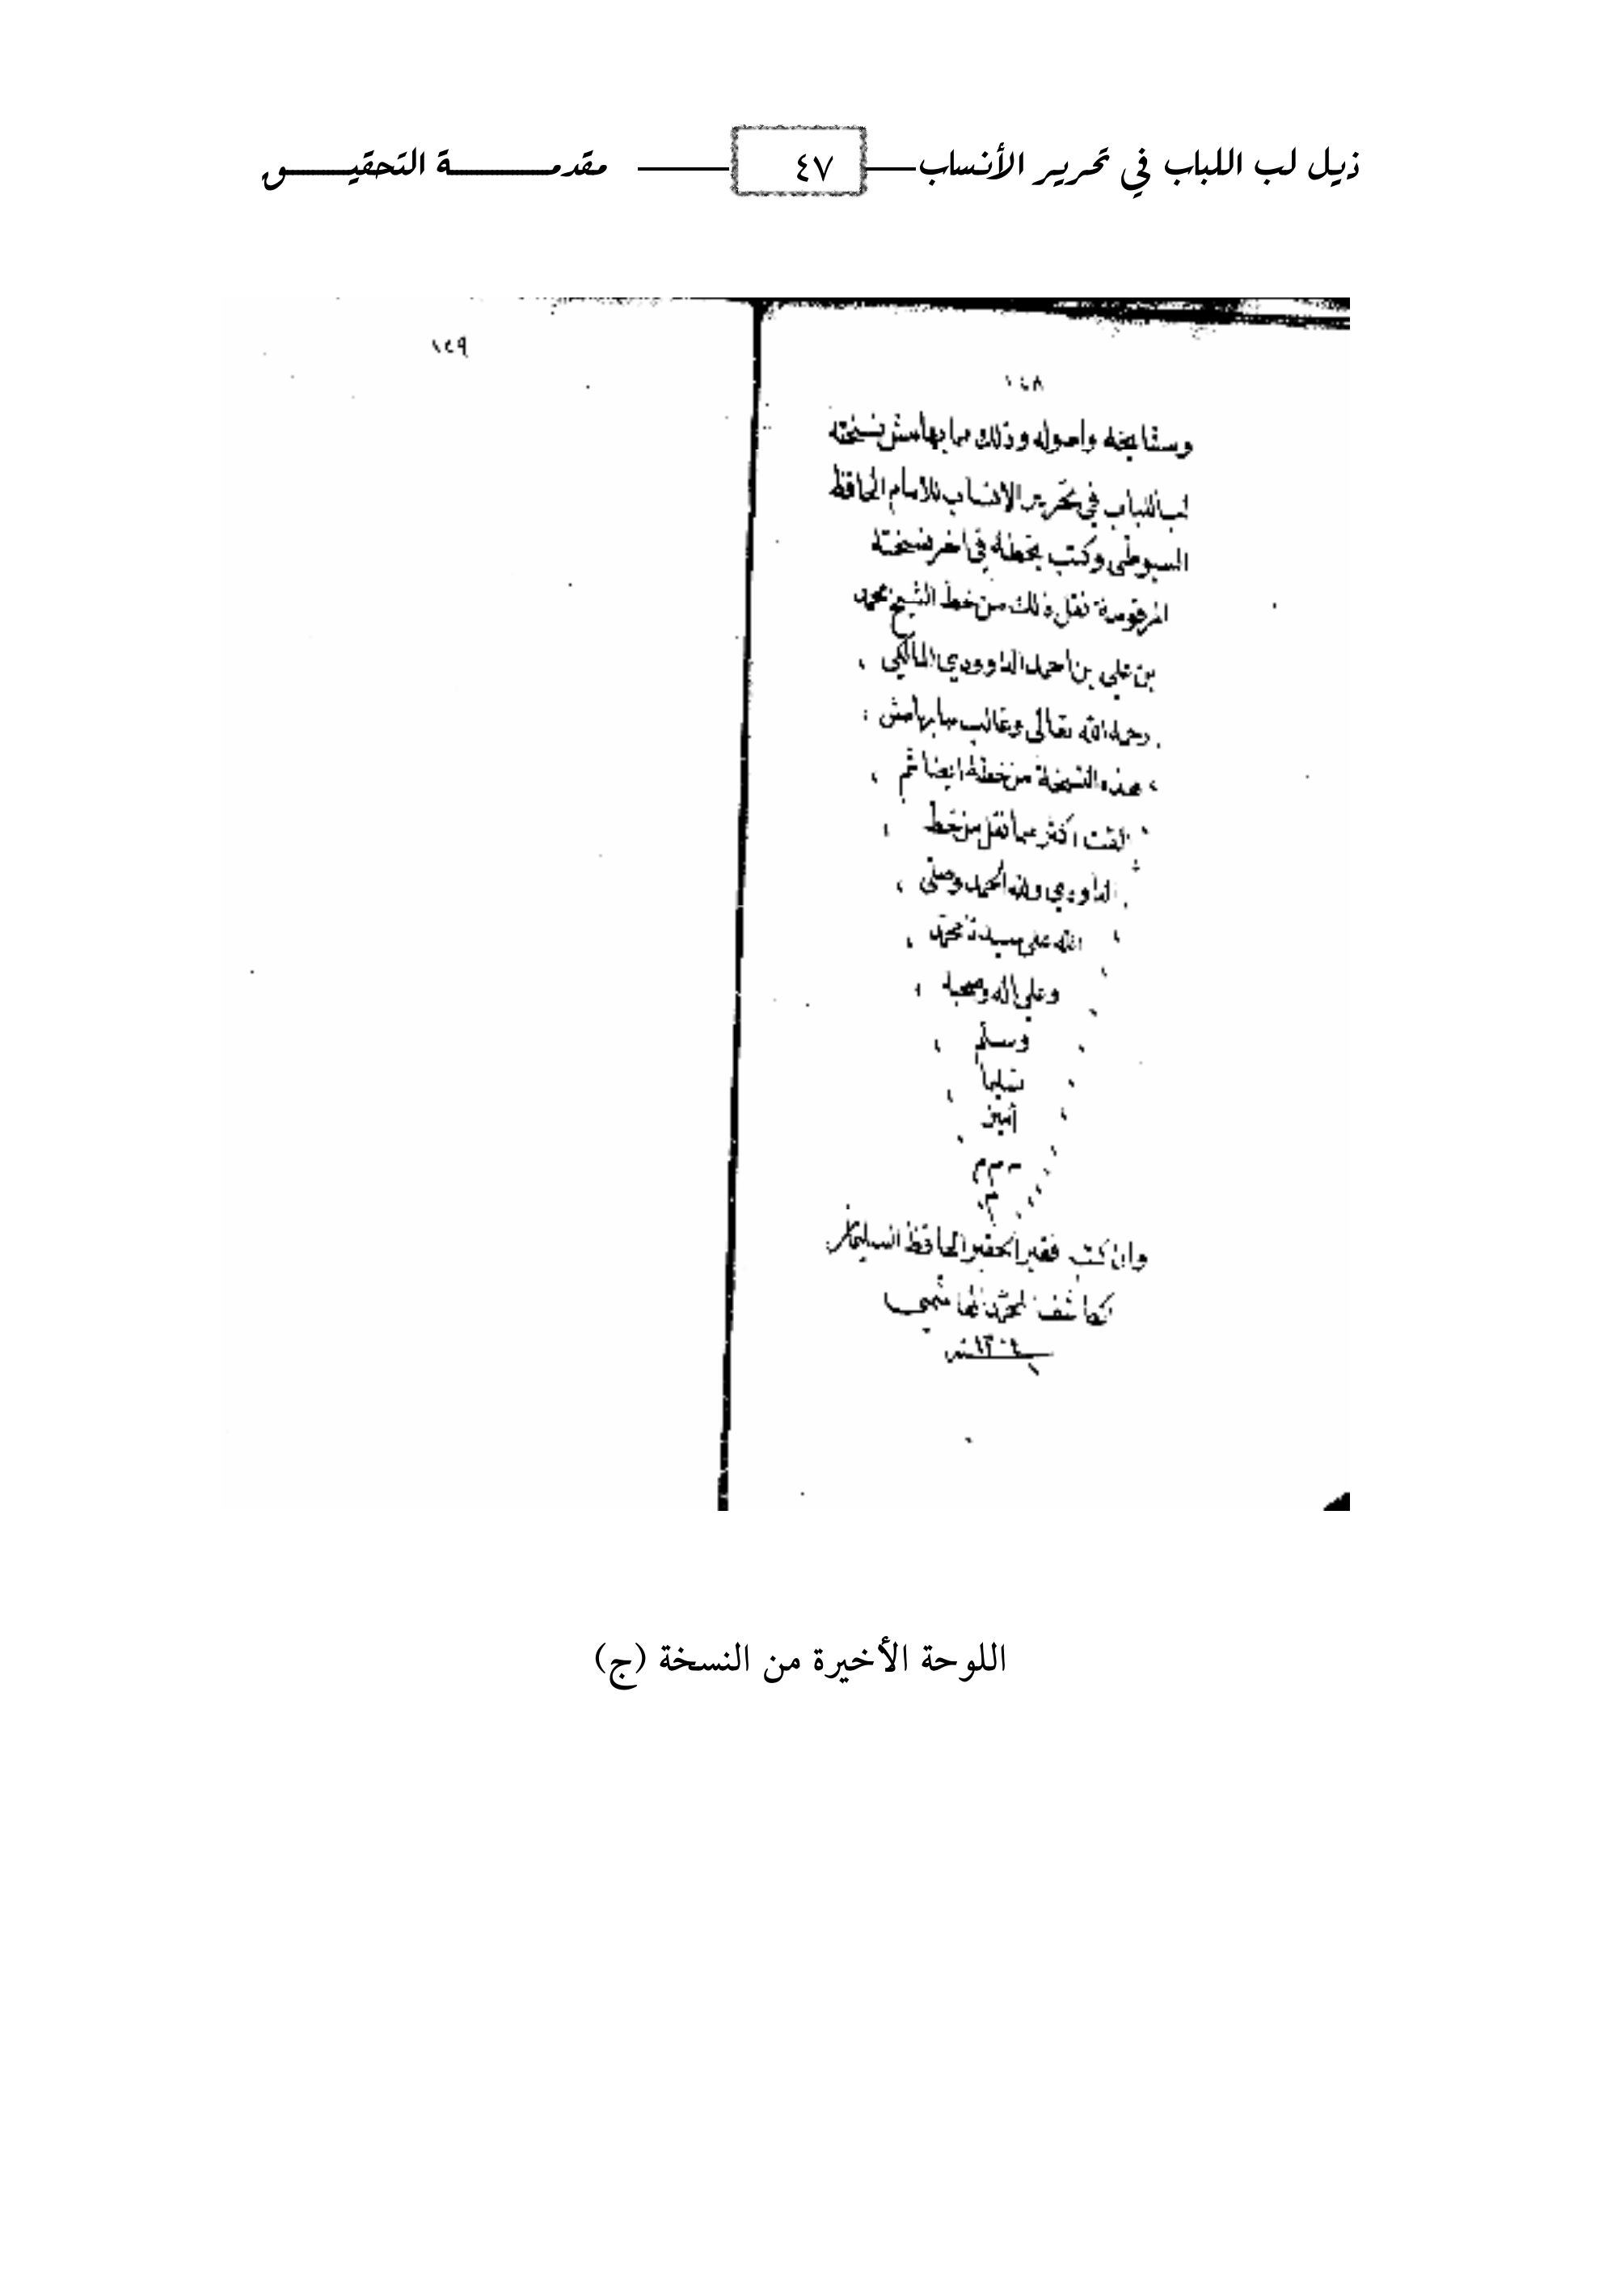 ذيل لب اللباب في تحرير الأنساب ٤٧ مقدمة التحقيق
١٤٩
١٤٨
ومشايخه واصوله وذلك مما بهامش نسخته
لب اللباب في تحرير الانساب للامام الحافظ
السيوطي وكتب بخطه في اخر نسخته
المرقومة نقل ذلك من خط الشيخ محمد
بن علي بن احمد الداوودي المالكي
رحمه الله تعالى وغالب ما بهامش
هذه النسخة من خطه ايضا ثم
اكثر مما نقل من خط
الداودي ولله الحمد وصلى
الله على سيدنا محمد
وعلى اله وصحبه
وسلم
تسليما
آمين
فقير الحقير الحافظ
اللوحة الأخيرة من النسخة (ج)